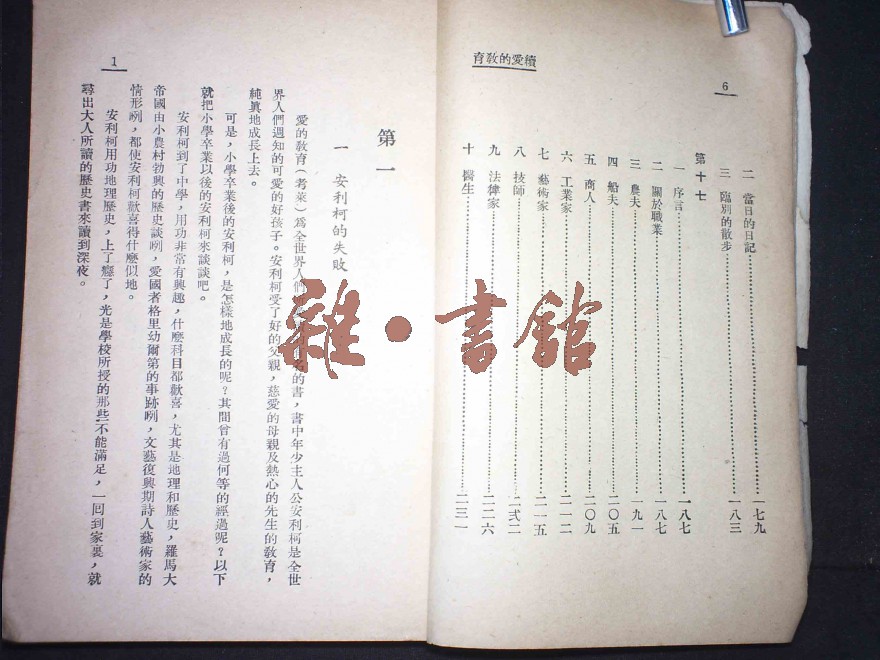 續愛的教育
6
二 當日的日記………一七九
三 臨別的散步………一八三
第十七
一 序言………一八七
二 關於職業………一八七
三 農夫………一九一
四 船夫………二〇五
五 商人………二〇九
六 工業家………二一二
七 藝術家………二一五
八 技師………二弍二
九 法律家………二二六
十 醫生………二三一
1
第一
一 安利柯的失敗
愛的教育(考萊)爲全世界人們的書,書中年少主人公安利柯是全世
界人們週知的可愛的好孩子。安利柯受了好的父親,慈愛的母親及熱心的先生的教育,
純眞地成長上去。
可是,小學卒業後的安利柯,是怎樣地成長的呢?其間曾有過何等的經過呢?以下
就把小學卒業以後的安利柯來談談吧。
安利柯到了中學,用功非常有興趣,什麼科目都歡喜,尤其是地理和歷史,羅馬大
帝國由小農村勃興的歷史談咧,愛國者格里幼爾第的事跡咧,文藝復興期詩人藝術家的
情形咧,都使安利柯歡喜得什麼似地。
安利柯用功地理歷史,上了癮了,光是學校所授的那些不能滿足,一回到家裏,就
尋出大人所讀的歷史書來讀到深夜。
雜•書館